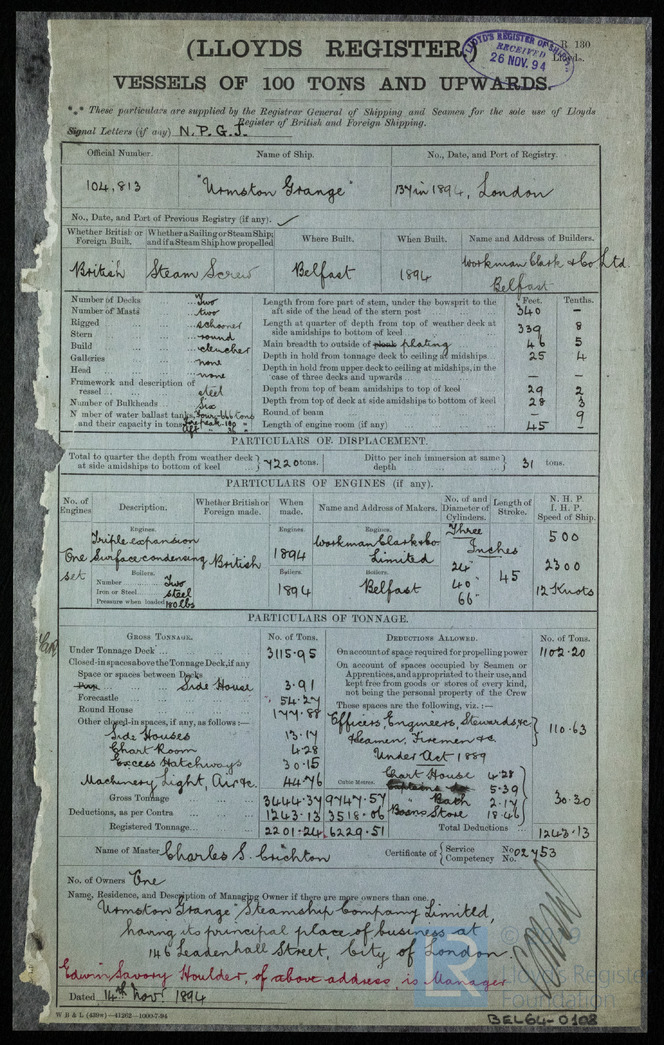 (LLOYDS REGISTER)
LLOYD'S REGISTER OF SHIPPING RECEIVED 26 NOV. 94
R 130
Lloyds.
VESSELS OF 100 TONS AND UPWARDS.
*** These particulars are supplied by the Registrar General of Shipping and Seamen for the sole use of Lloyds
Register of British and Foreign Shipping.
Signal Letters (if any) N.P.G.J.
Official Number. Name of Ship. No., Date, and Port of Registry.
104,813 "Urmston Grange" 137 in 1894, London
No., Date, and Port of Previous Registry (if any). ✓
Whether British or Foreign Built. Whether a Sailing or Steam Ship; and if a Steam Ship how propelled Where Built. When Built. Name and Address of Builders.
British Steam Screw Belfast 1894 Workman Clark & Co Ltd. Belfast
Number of Decks ... Two
Number of Masts ... two
Rigged ... schooner
Stern ... round
Build ... clencher
Galleries ... none
Head ... none
Framework and description of vessel ... steel
Number of Bulkheads ... Six
Number of water ballast tanks, and their capacity in tons
Feet. Tenths.
Length from fore part of stem, under the bowsprit to the aft side of the head of the stern post 340 –
Length at quarter of depth from top of weather deck at side amidships to bottom of keel 339 8
Main breadth to outside of plank plating 46 5
Depth in hold from tonnage deck to ceiling at midships 25 4
Depth in hold from upper deck to ceiling at midships, in the case of three decks and upwards – –
Depth from top of beam amidships to top of keel 29 2
Depth from top of deck at side amidships to bottom of keel 28 3
Round of beam – 9
Length of engine room (if any) 45 –
PARTICULARS OF DISPLACEMENT.
Total to quarter the depth from weather deck at side amidships to bottom of keel } 7220 tons. Ditto per inch immersion at same depth } 31 tons.
PARTICULARS OF ENGINES (if any).
No. of Engines Description. Whether British or Foreign made. When made. Name and Address of Makers. No. of and Diameter of Cylinders. Length of Stroke. N. H. P. I. H. P. Speed of Ship.
Engines. Engines. Engines.
One set Triple expansion Surface condensing British 1894 Workman Clark & Co Limited Three Inches 24" 40" 66" 45 500 2300 12 Knots
Boilers. Boilers. Boilers.
Number ... Two
Iron or Steel ... steel
Pressure when loaded 180 lbs
1894 Belfast
PARTICULARS OF TONNAGE.
GROSS TONNAGE. No. of Tons.
Under Tonnage Deck 3115.95
Closed-in spaces above the Tonnage Deck, if any
Space or spaces between Decks
Side House 3.91
Forecastle 54.27
Round House 177.88
Other closed-in spaces, if any, as follows:—
Side Houses 13.17
Chart Room 4.28
Excess Hatchways 30.15
Machinery, Light, Air &c. 44.76
Cubic Metres.
Gross Tonnage 3444.37 9747.57
Deductions, as per Contra 1243.13 3518.06
Registered Tonnage 2201.24 6229.51
DEDUCTIONS ALLOWED. No. of Tons.
On account of space required for propelling power 1102.20
On account of spaces occupied by Seamen or Apprentices, and appropriated to their use, and kept free from goods or stores of every kind, not being the personal property of the Crew
These spaces are the following, viz. :—
Officers, Engineers, Stewards &c & Seamen, Firemen &c. } 110.63
Under Act 1889
Chart House 4.28
5.39
" Bath 2.17
Boatns Store 18.46
30.30
Total Deductions 1243.13
Name of Master Charles S. Crichton Certificate of { Service Competency No. No. 02753
No. of Owners One
Name, Residence, and Description of Managing Owner if there are more owners than one.
Urmston Grange Steamship Company Limited,
having its principal place of business at
146 Leadenhall Street, City of London.
Edwin Savory Houlder, of above address, is Manager
Dated 14th Nov. 1894
W B & L (439w)—41262—1000-7-94
BEL64-0108
LR
© 2019
Lloyds Register
Foundation